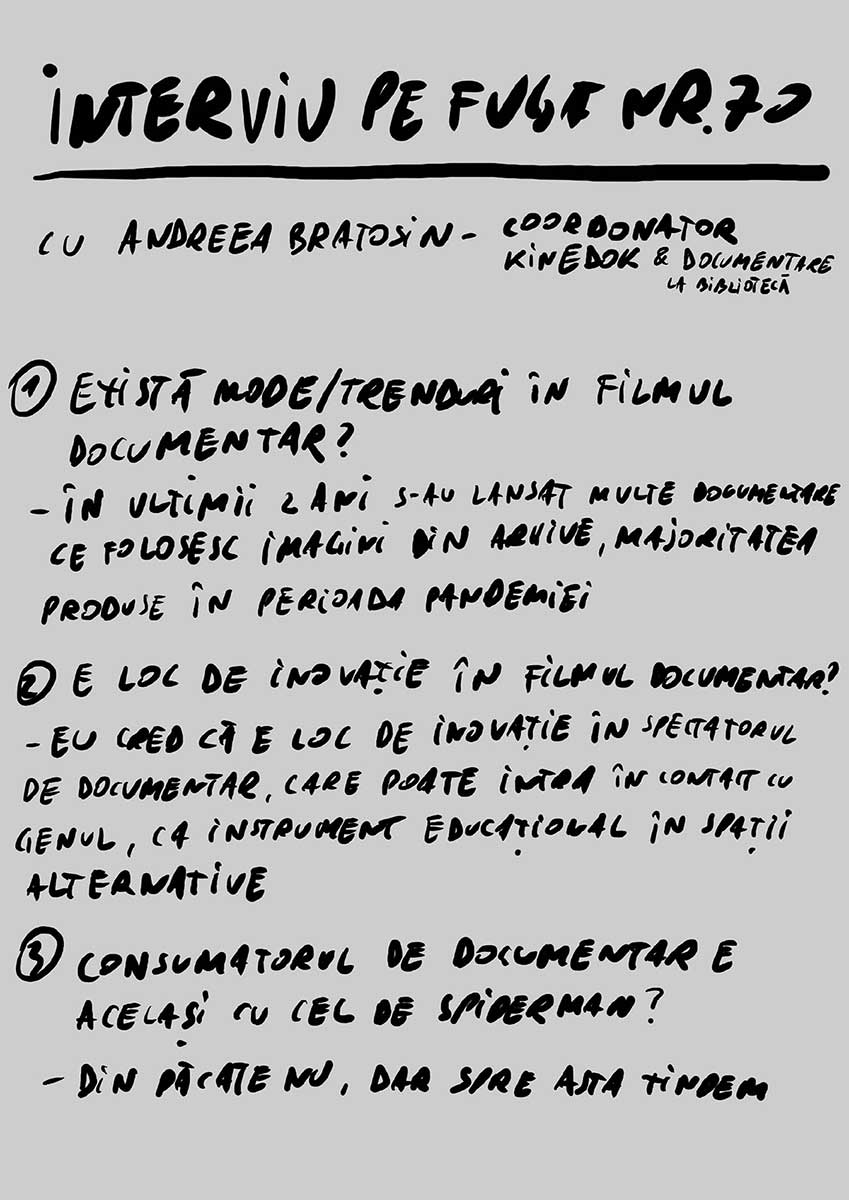 INTERVIU PE FUGĂ NR. 70
CU ANDREEA BRATOSIN - COORDONATOR
KINEDOK & DOCUMENTARE
LA BIBLIOTECĂ
1 EXISTĂ MODE/TRENDURI ÎN FILMUL
DOCUMENTAR?
- ÎN ULTIMII 2 ANI S-AU LANSAT MULTE DOCUMENTARE
CE FOLOSESC IMAGINI DIN ARHIVE, MAJORITATEA
PRODUSE ÎN PERIOADA PANDEMIEI
2 E LOC DE INOVAȚIE ÎN FILMUL DOCUMENTAR?
- EU CRED CĂ E LOC DE INOVAȚIE ÎN SPECTATORUL
DE DOCUMENTAR, CARE POATE INTRA ÎN CONTACT CU
GENUL, CA INSTRUMENT EDUCAȚIONAL ÎN SPAȚII
ALTERNATIVE
3 CONSUMATORUL DE DOCUMENTAR E
ACELAȘI CU CEL DE SPIDERMAN?
- DIN PĂCATE NU, DAR SPRE ASTA TINDEM